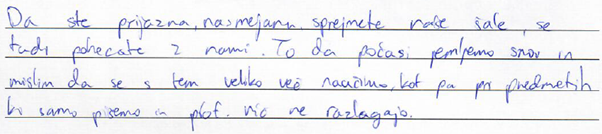 Da ste prijazna, nasmejana, sprejmete naše šale, se
tudi pohecate z nami. To da počasi jemljemo snov in
mislim da se s tem veliko več naučimo, kot pa pri predmetih
ki samo pišemo in prof. nič ne razlagajo.